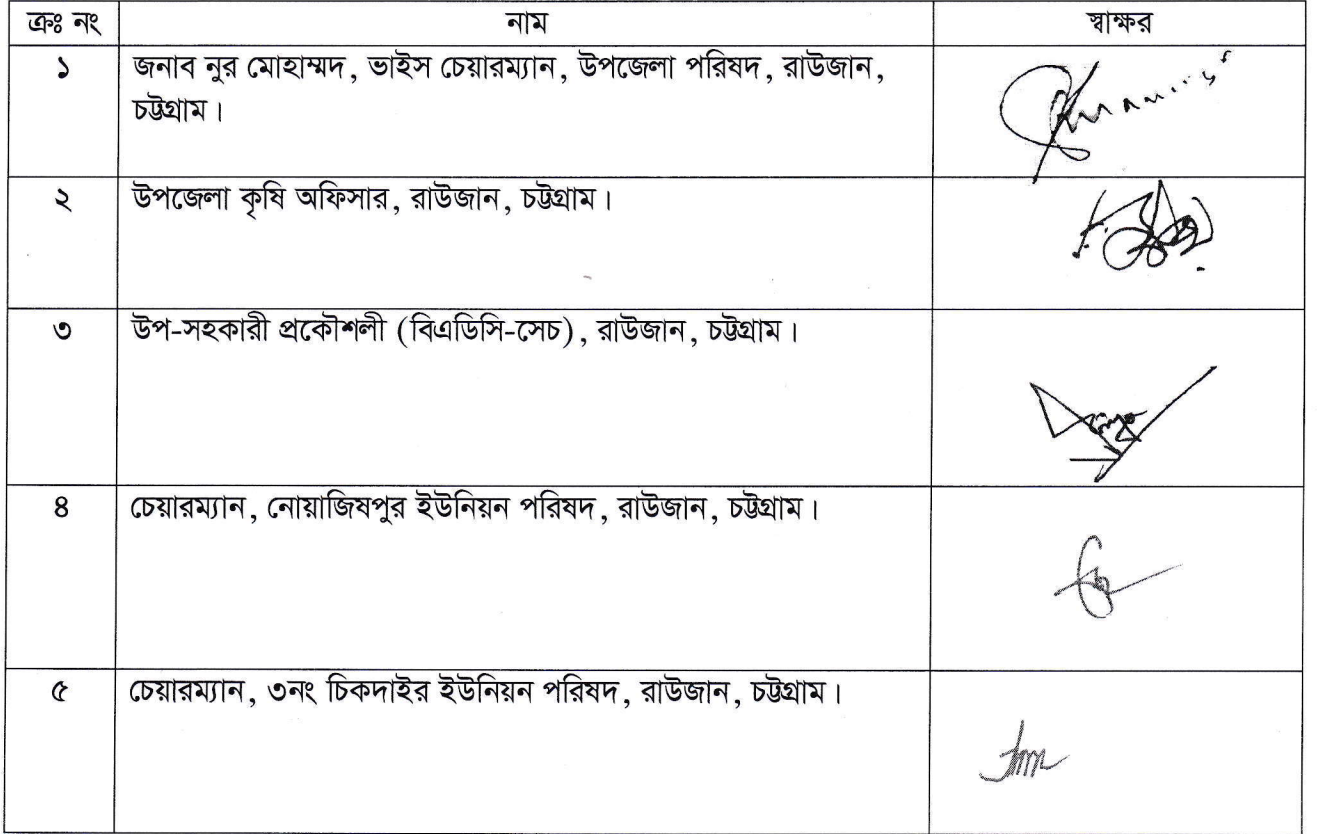 ক্রঃ নং নাম স্বাক্ষর
১ জনাব নুর মোহাম্মদ, ভাইস চেয়ারম্যান, উপজেলা পরিষদ, রাউজান,
চট্টগ্রাম।
২ উপজেলা কৃষি অফিসার, রাউজান, চট্টগ্রাম।
৩ উপ-সহকারী প্রকৌশলী (বিএডিসি-সেচ), রাউজান, চট্টগ্রাম।
৪ চেয়ারম্যান, নোয়াজিষপুর ইউনিয়ন পরিষদ, রাউজান, চট্টগ্রাম।
৫ চেয়ারম্যান, ৩নং চিকদাইর ইউনিয়ন পরিষদ, রাউজান, চট্টগ্রাম।